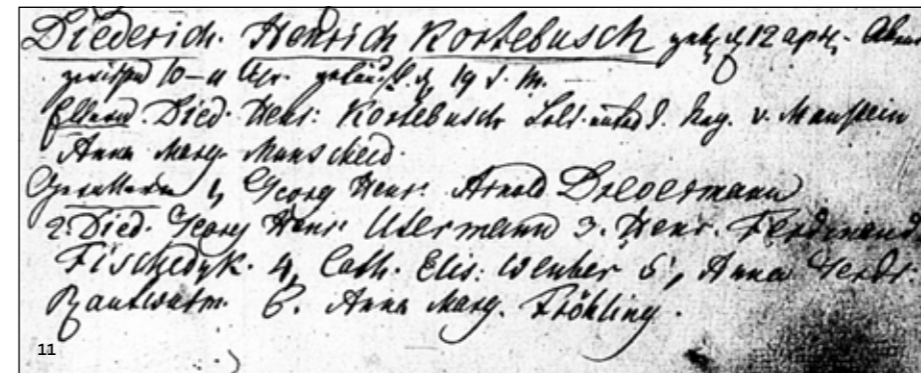 Diederich. Henrich Kortebusch geb. d. 12 apr. Abends
zwischen 10–11 Uhr. getauft d. 19 d. M.
Eltern Died. Henr: Kortebusch Sold. unter d. Reg. v. Manstein
Anna Marg. Munscheid.
Gevattern 1, Georg Henr. Arnold Drevermann
2. Died. Georg Henr. Utermann 3. Henr. Ferdinand
Fischedyk. 4, Cath. Elis: Wenber 5, Anna Gerdr.
6. Anna Marg. Fröhling.
11